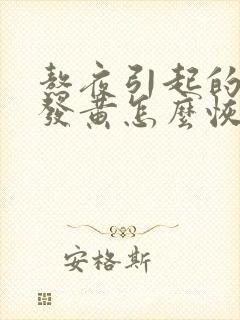 熬夜引起的
發黃怎麼恢
安格斯